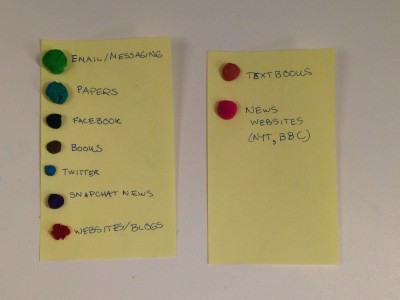 EMAIL/MESSAGING
PAPERS
FACEBOOK
BOOKS
TWITTER
SNAPCHAT NEWS
WEBSITES/BLOGS
TEXTBOOKS
NEWS
WEBSITES
(NYT, BBC)